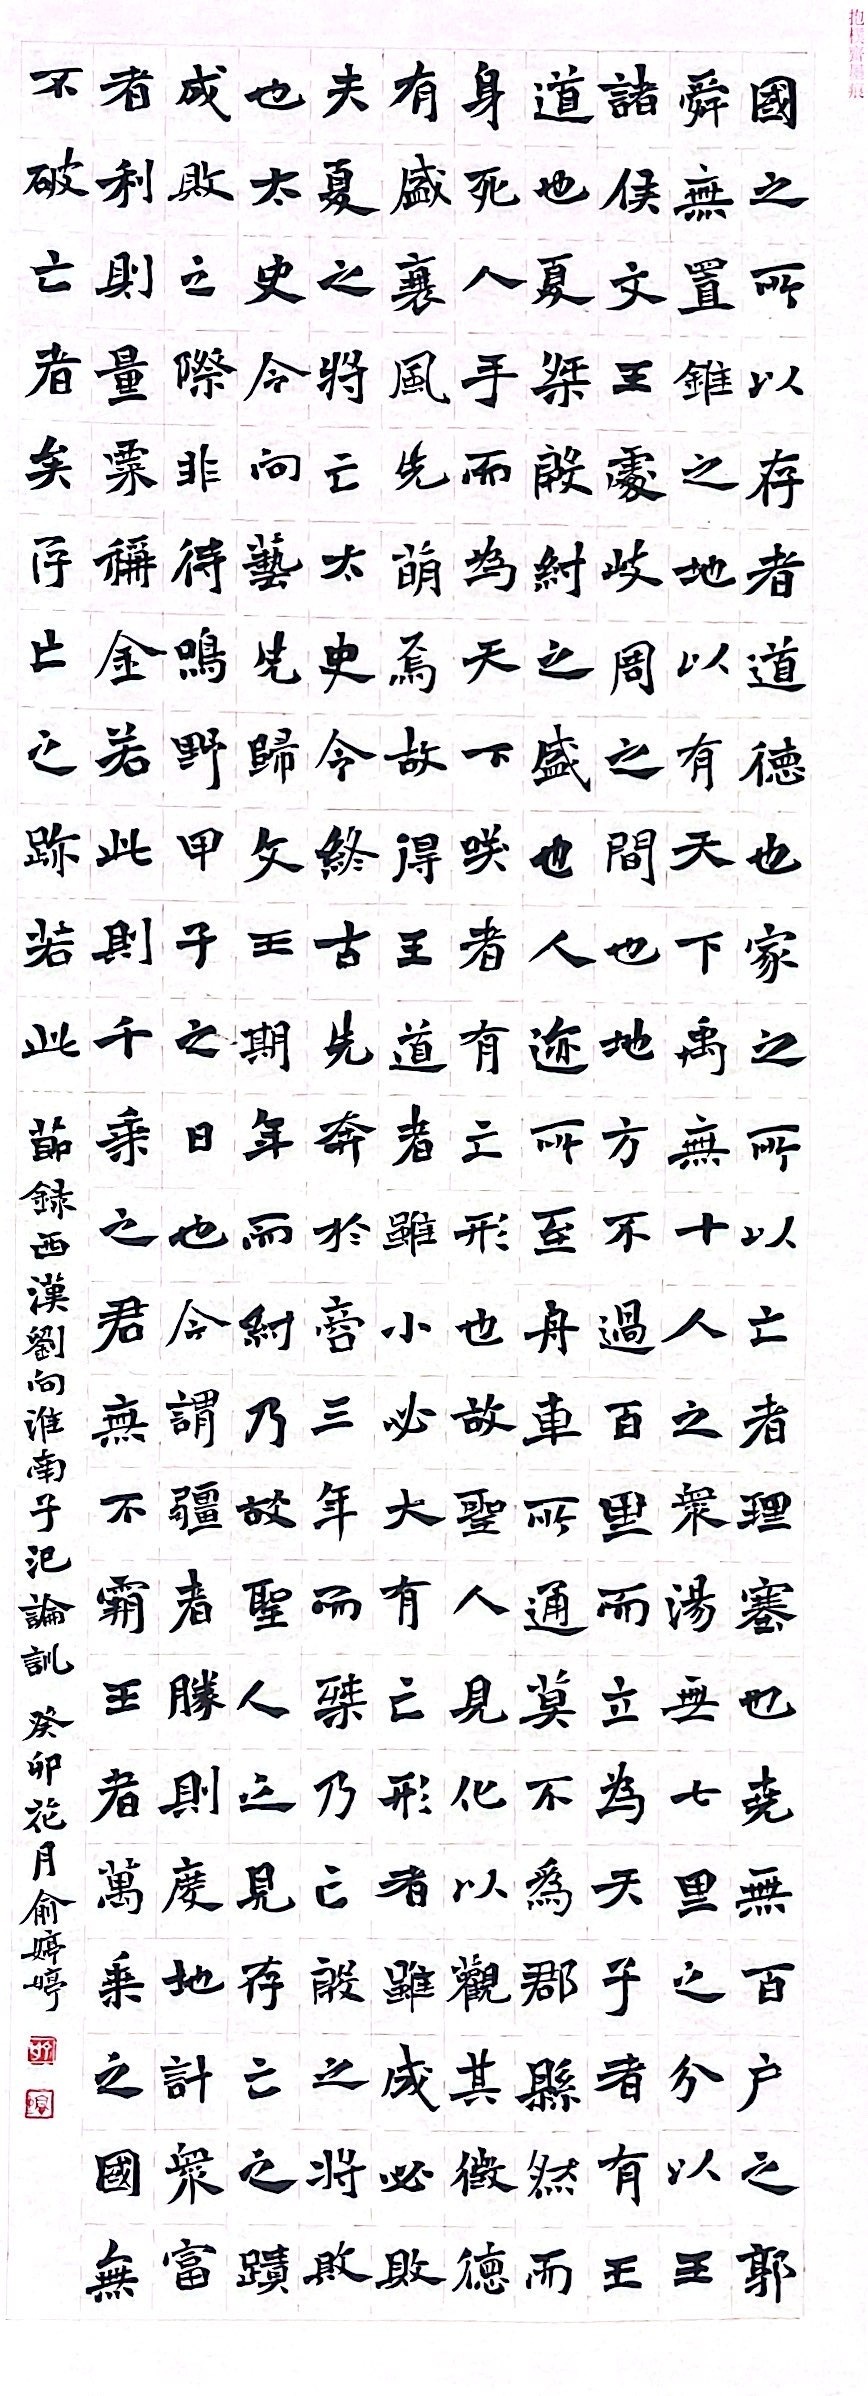 國之所以存者道德也家之所以亡者理塞也堯無百户之郭
舜無置錐之地以有天下禹無十人之衆湯無七里之分以王
諸侯文王處岐周之間也地方不過百里而立為天子者有王
道也夏桀殷紂之盛也人迹所至舟車所通莫不爲郡縣然而
身死人手而為天下咲者有亡形也故聖人見化以觀其徵德
有盛衰風先萌焉故得王道者雖小必大有亡形者雖成必敗
夫夏之將亡太史令終古先奔於商三年而桀乃亡殷之將敗
也太史令向藝先歸文王期年而紂乃故聖人之見存亡之蹟
成敗之際非待鳴野甲子之日也今謂疆者勝則度地計衆富
者利則量粟稱金若此則千乘之君無不霸王者萬乘之國無
不破亡者矣存亡之跡若此
節録西漢劉向淮南子氾論訓 癸卯花月俞婷婷